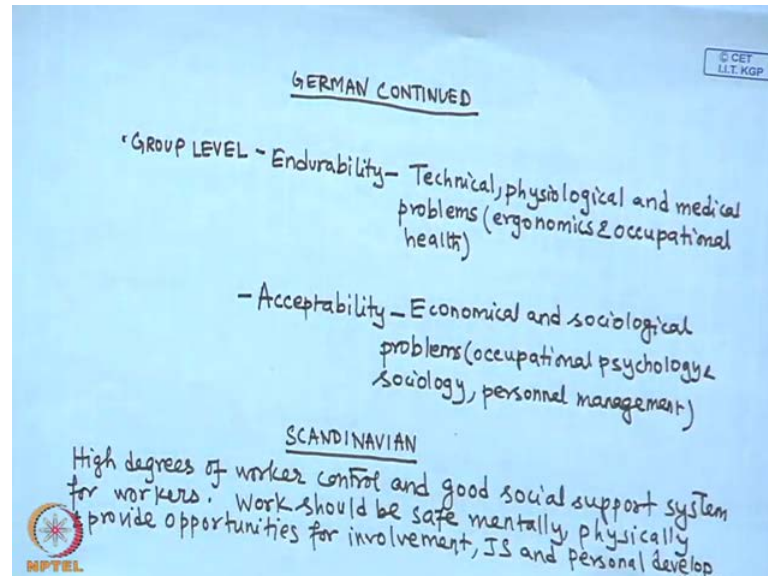 © CET
I.I.T. KGP
GERMAN CONTINUED
• GROUP LEVEL - Endurability - Technical, physiological and medical
problems (ergonomics & occupational
health)
- Acceptability - Economical and sociological
problems (occupational psychology &
sociology, personnel management)
SCANDINAVIAN
High degrees of worker control and good social support system
for workers. Work should be safe mentally, physically
& provide opportunities for involvement, JS and personal develop
NPTEL